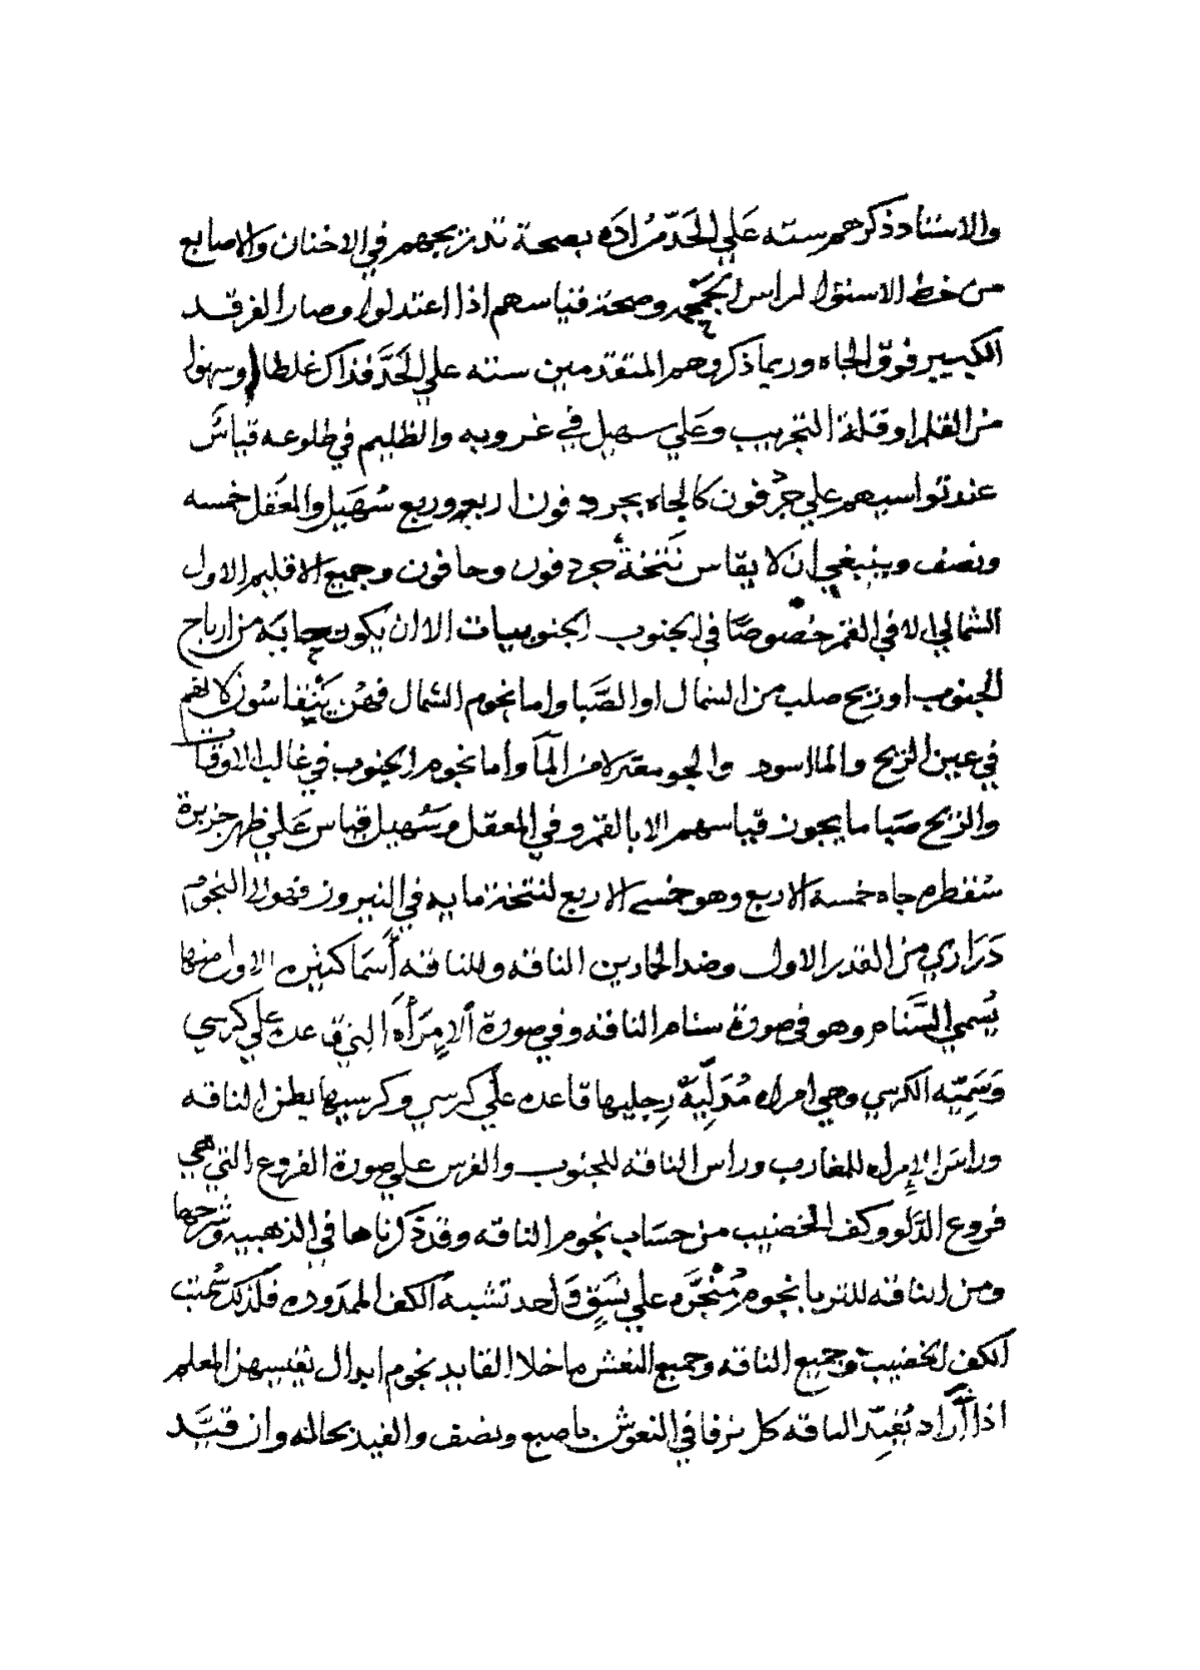 والاستناد ذكرهم سته علي الحَدّ مرُادَه بصحة تدريجهم في الاخنان والاصابع
من خط الاستوا لراس الجمجمه وصحة قياسهم اذا اعتدلوا وصار الفرقد
الكبير فوق الجاه وربما ذكروهم المتقدمين سته علي الحَدَّ فذاك غلطا وسهوا
من القلم او قلة التجريب وعَلي سهيل في غروبه والظليم في طلوعه قياسٌ
عند تواسيهم علي جرُد فون كالجاه بجرد فون اربع وربع سُهَيل والمعَقل خمسه
ونصف وينبغي ان لا يقاس نَتَخَةُ جرد فون وحافون وجميع الاقليم الاول
الشمالي الا في القمر خصُوصًا في الجنوب الجنوبيات الا ان يكون جايَة من ارياح
الجنوب او ريح صلب من الشمال او الصَّبا واما نجوم الشمال فهن يَنْقاسُون كالقمر
في عين الريح والما اسود والجو مغبر لا من المآ وأما نجوم الجنوب في غالب الاوقات
والريح صَبا ما يجون قياسهم الا بالقمر وفي المعقل وسُهيل قياس عَلي ظهر جزيرة
سُقطره جاه خمسه الا ربع وهو خمسه الا ربع لنتخة مايه في النيروز فهولا النجوم
دَرَاري من القدر الاول وضد الحادين الناقه وللناقه أسمَا كثيره الاول منها
يُسمي السَّنام وهو في صورة سنام الناقه وفي صورة ألإمرَأَه التي قاعده علي كرسي
وَسَمِيّه الكرسي وهي امراه مُدَلّيَةٌ رِجليها قاعده علَي كرسي وكرسيها بطن الناقه
وراسَ الإمراه للمغارب وراس الناقه للجنوب والفرس علي صورة الفروع التي هي
فروع الدَّلَو وكف الخضيب من حسَاب نجوم الناقه وقد ذكرناها في الذهبيه وشرحها
ومن الناقه للثريا نجوم مُنْجَرَّه علي نسَقٍ وَاحد تشبه الكف الممدَوده فلذلك سُميت
الكف الخضيب وجميع الناقه وجميع النعش ما خلا القايد نجوم ابدال يقيسهن المعلم
اذا أرَاد يُقيِدّ الناقه كل ترفا في النعوش باصبع ونصف والقيد بحاله وان قيَّد